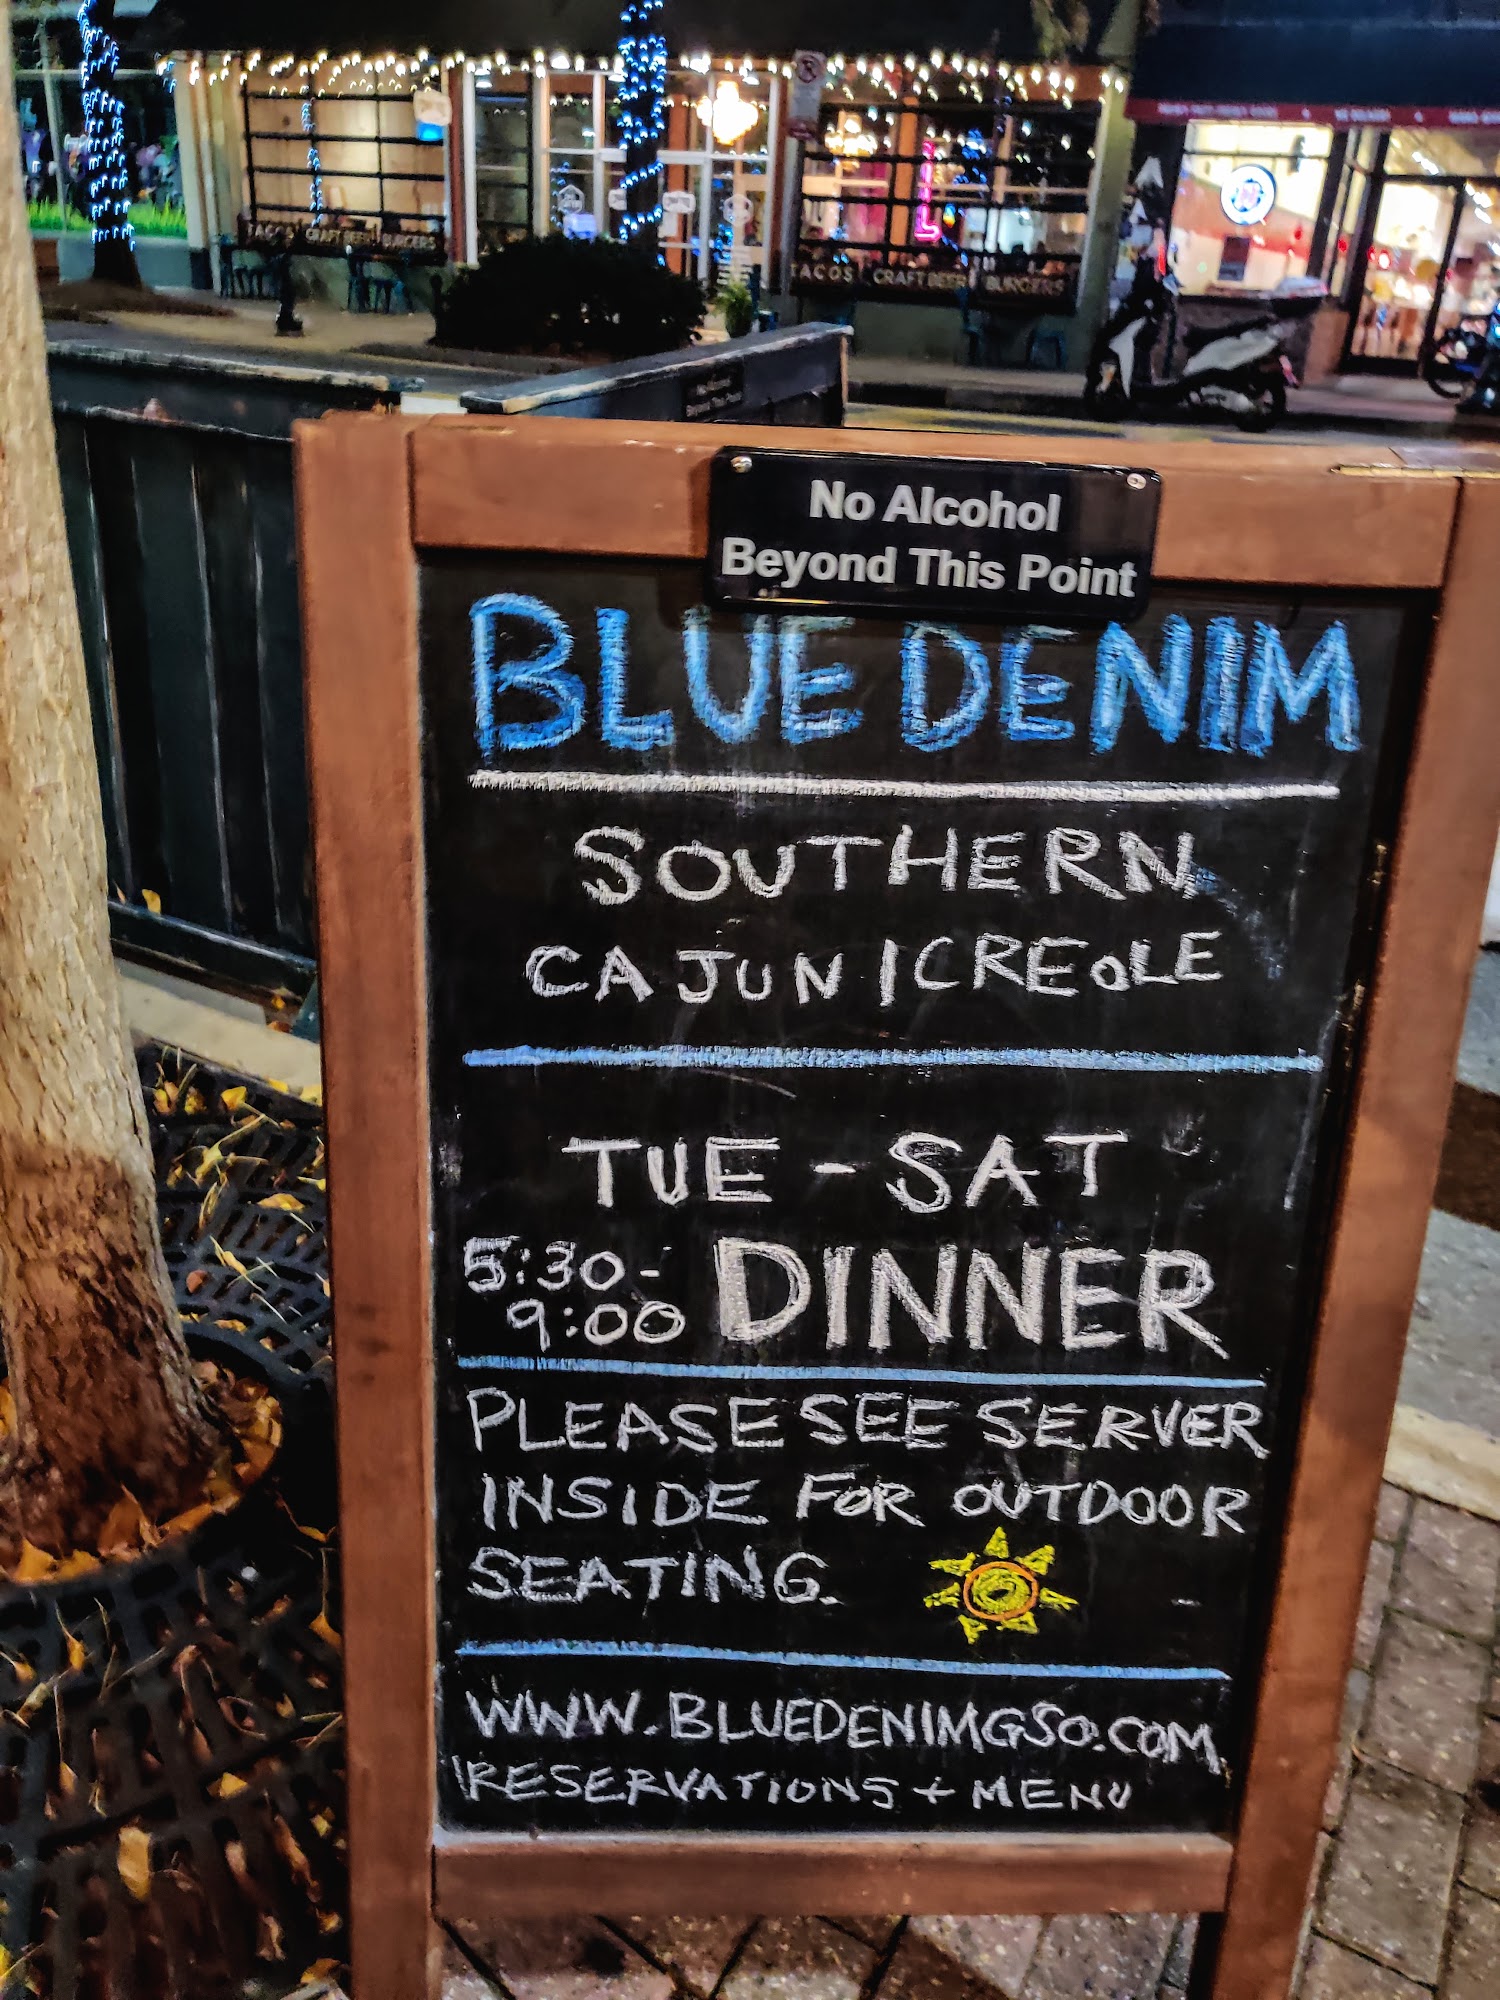 TACOS CRAFT BEER BURGERS
TACOS CRAFT BEER BURGERS
No Alcohol
Beyond This Point
No Alcohol
Beyond This Point
BLUE DENIM
SOUTHERN
CAJUN / CREOLE
TUE - SAT
5:30 -
9:00 DINNER
PLEASE SEE SERVER
INSIDE FOR OUTDOOR
SEATING.
WWW.BLUEDENIMGSO.COM
RESERVATIONS + MENU